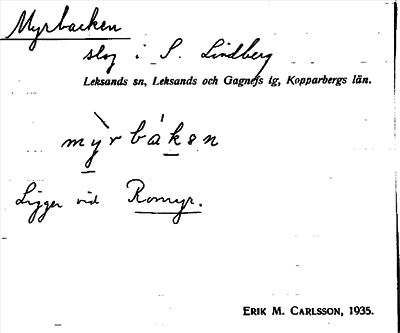 Myrbacken
slog i S. Lindberg
Leksands sn, Leksands och Gagnefs tg, Kopparbergs län.
mỳrbákən
Ligger vid Romyr.
ERIK M. CARLSSON, 1935.